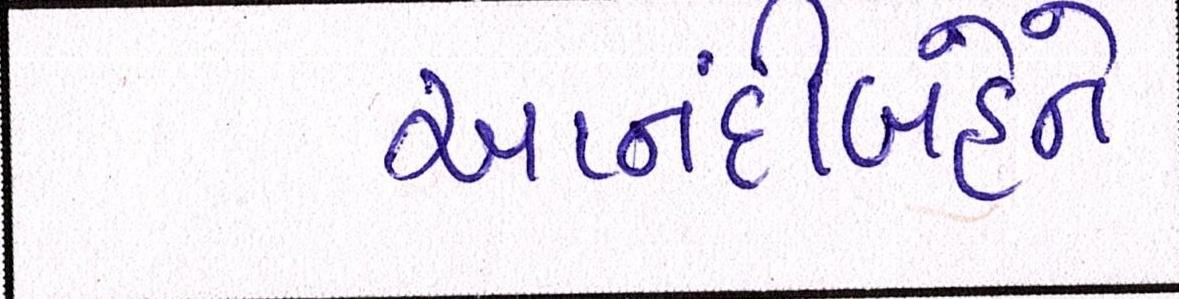 આનંદીબહેને